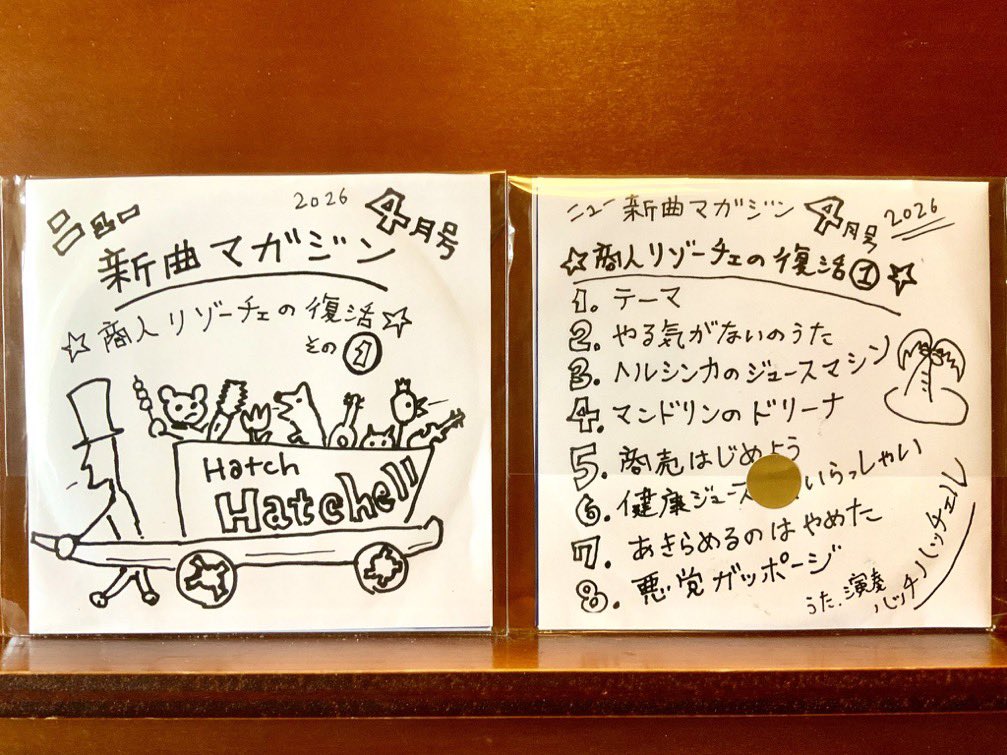 ニュー
2026
4月号
新曲マガジン
☆商人リゾーチェの復活☆
その①
Hatch
Hatchell
ニュー 新曲マガジン 4月号 2026
☆商人リゾーチェの復活①☆
1. テーマ
2. やる気がないのうた
3. ヘルシンカのジュースマシン
4. マンドリンのドリーナ
5. 商売はじめよう
6. 健康ジュース いらっしゃい
7. あきらめるのはやめた
8. 悪党ガッポージ
うた、演奏
ハッチハッチェル